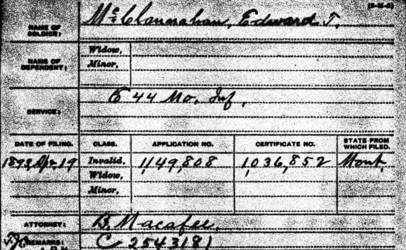 (3-M-4)
NAME OF SOLDIER: McClannahan, Edward T.
NAME OF DEPENDENT: Widow,
Minor,
SERVICE: E 44 Mo. Inf.
DATE OF FILING. CLASS. APPLICATION NO. CERTIFICATE NO. STATE FROM WHICH FILED.
1892 Apr 19 Invalid, 1,149,808 1,036,852 Mont.
Widow,
Minor,
ATTORNEY: B. Macafee
REMARKS: C 2543181